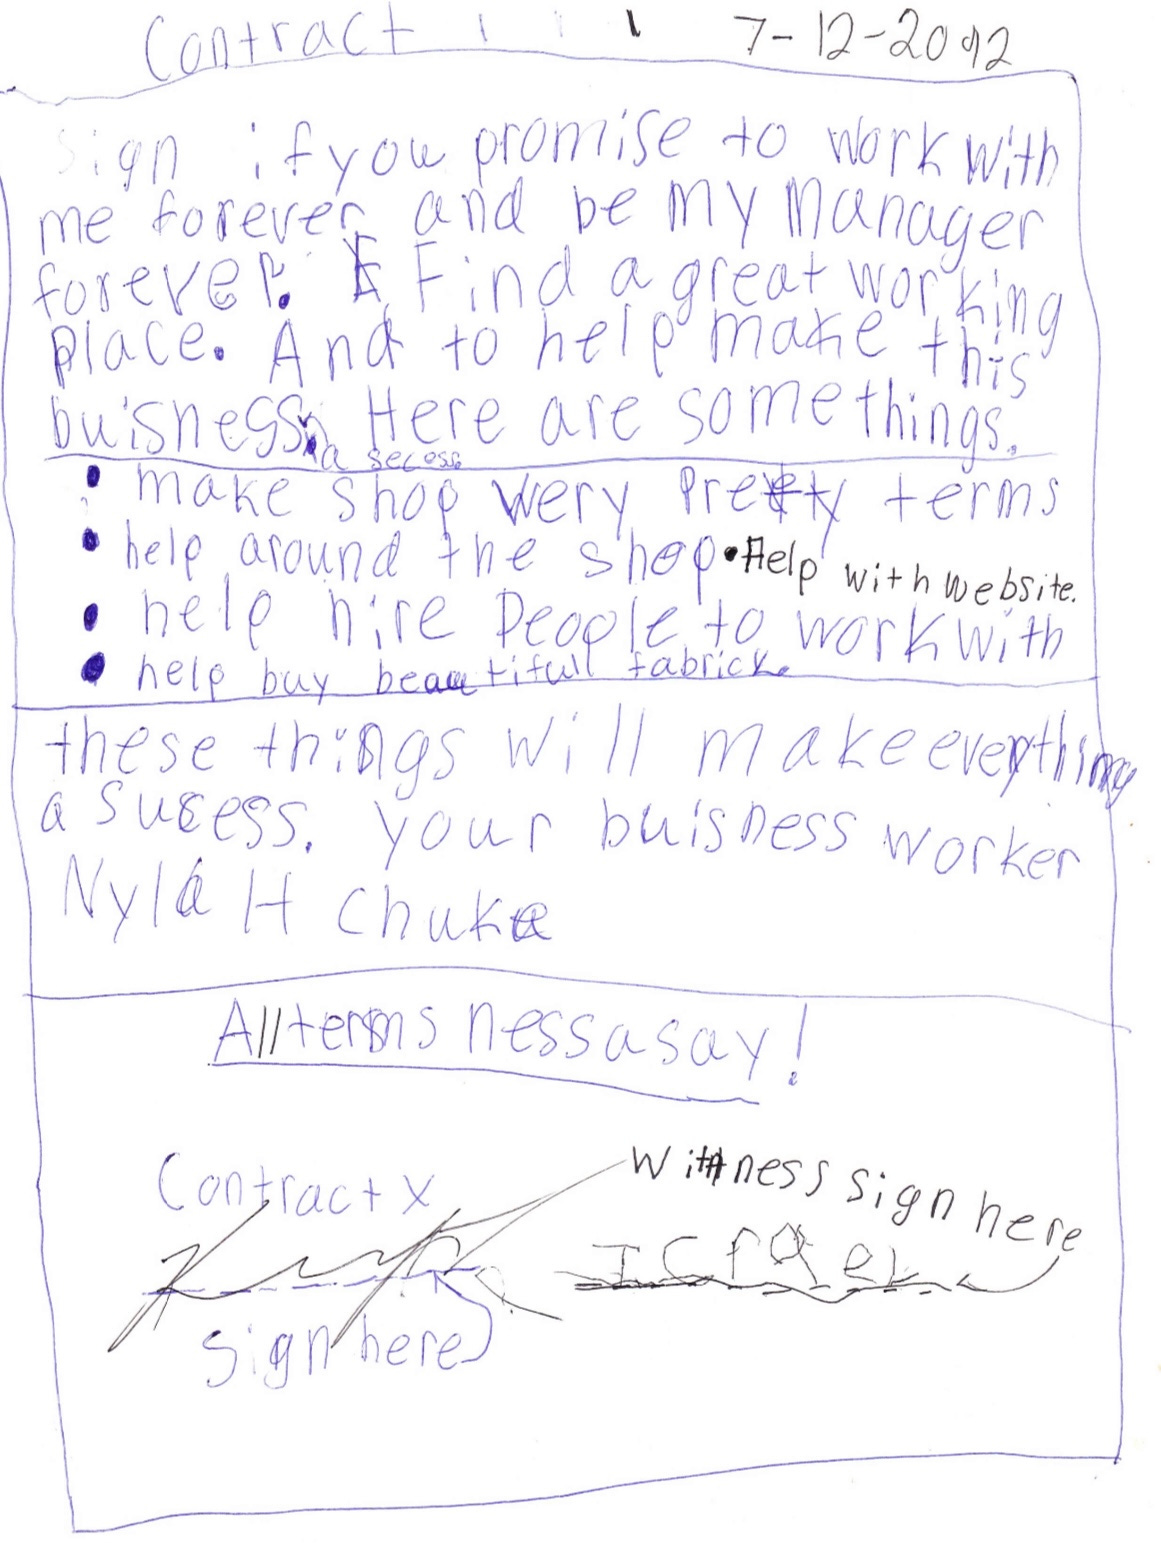 Contract 7-12-2012
Sign if you promise to work with
me forever and be my manager
forever. Find a great working
place. And to help make this
buisness a secess. Here are somethings.
• make shop very pretty terms
• help around the shop • Help with website.
• help hire people to work with
• help buy beautifull fabrick.
these things will make everything
a sucess. your buisness worker
Nyla H Chuke
All terms nessasay!
Contract x
Witness sign here
Sign here